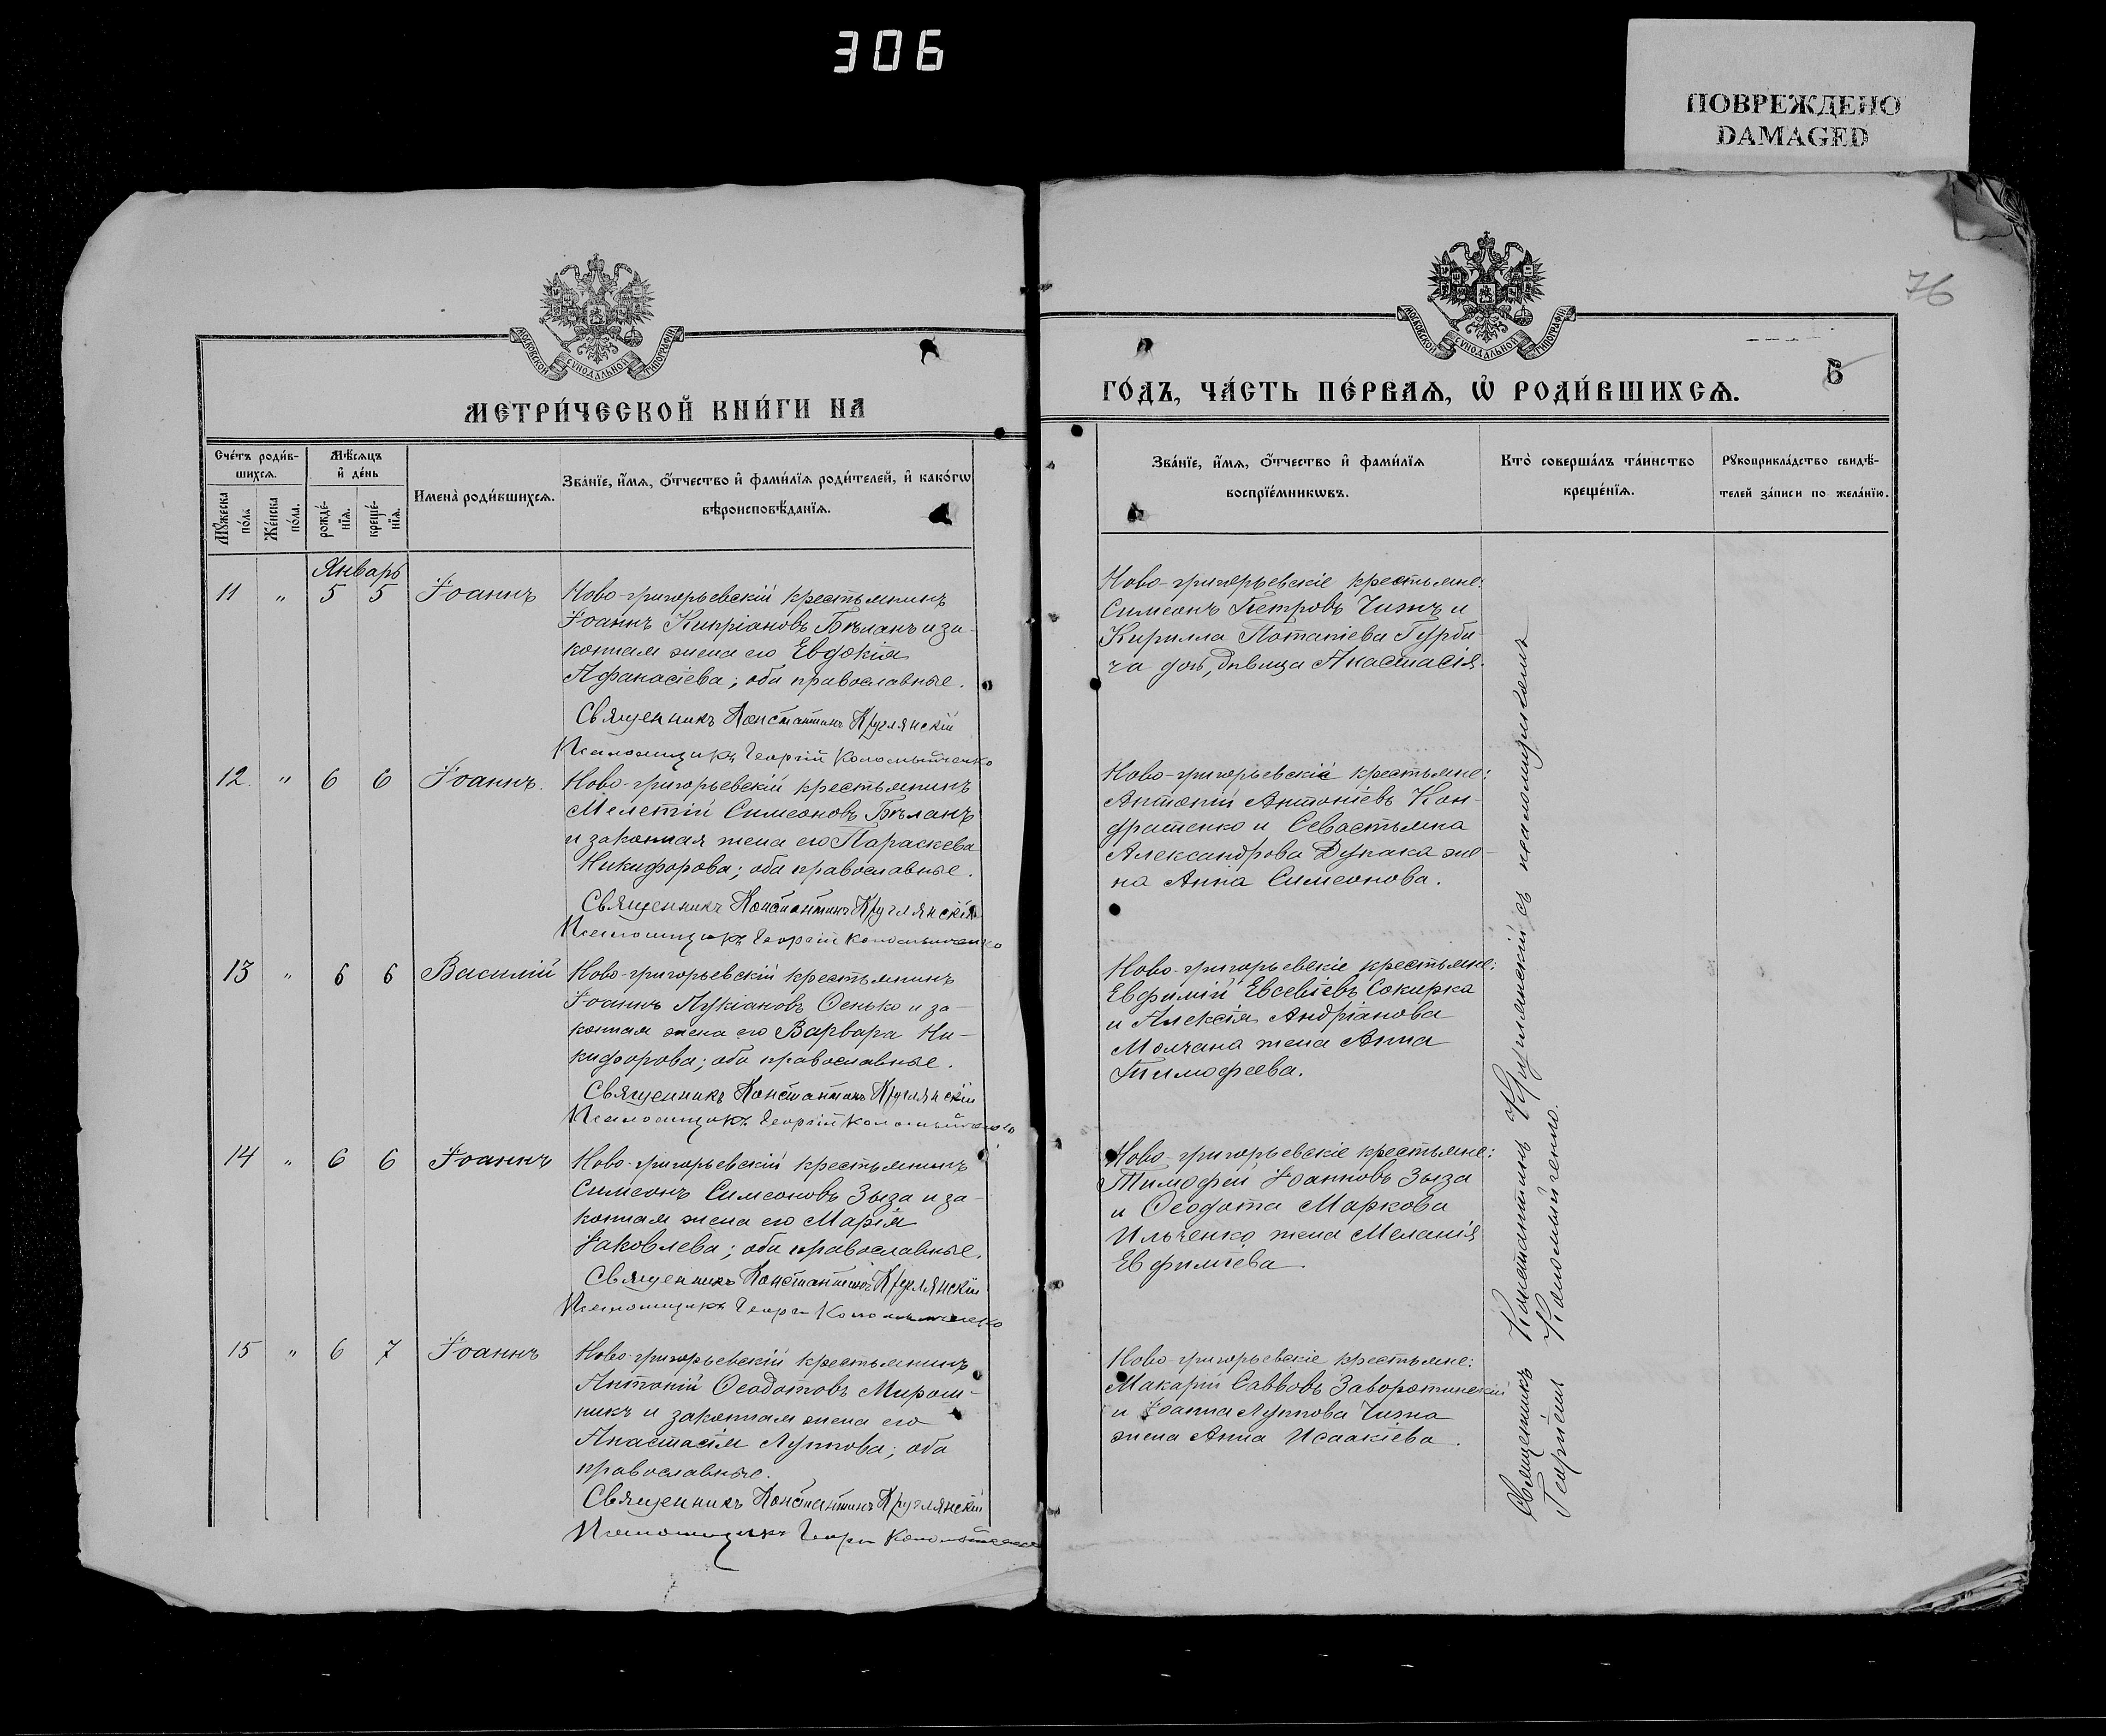 306
ПОВРЕЖДЕНО
DAMAGED
76
МОСКОВСКОЙ СѴНОДАЛЬНОЙ ТИПОГРАФІИ
МЕТРИ́ЧЕСКОЙ КНИ́ГИ НА
Сче́тъ роди́в-
шихсѧ.
Мѣ́сѧцъ
и҆ де́нь
Мꙋ́жеска
по́ла
Же́нска
по́ла.
рожде́-
нїѧ.
креще́-
нїѧ.
Имена̀ роди́вшихсѧ.
Зва́нїе, и҆́мѧ, ѻ҆́тчество и҆ фами́лїѧ роди́телей, и҆ како́гѡ
вѣроисповѣ́данїѧ.
Январь
11 " 5 5 Іоаннъ
Ново-григорьевскій крестьянинъ
Іоаннъ Кипріановъ Бѣланъ и за-
конная жена его Евдокія
Афанасіева; оба православные.
Священникъ Константинъ Круглянскій
Псаломщикъ Георгій Коломыйченко
12. " 6 6 Іоаннъ.
Ново-григорьевскій крестьянинъ
Мелетій Симеоновъ Бѣланъ
и законная жена его Параскева
Никифорова; оба православные.
Священникъ Константинъ Круглянскій
Псаломщикъ Георгій Коломыйченко
13 " 6 6 Василій
Ново-григорьевскій крестьянинъ
Іоаннъ Лукіановъ Сенько и за-
конная жена его Варвара Ни-
кифорова; оба православные.
Священникъ Константинъ Круглянскій
Псаломщикъ Георгій Коломыйченко
14 " 6 6 Іоаннъ
Ново-григорьевскій крестьянинъ
Симеонъ Симеоновъ Зыза и за-
конная жена его Марія
Іаковлева; оба православные.
Священникъ Константинъ Круглянскій
Псаломщикъ Георгій Коломыйченко
15 " 6 7 Іоаннъ
Ново-григорьевскій крестьянинъ
Антоній Ѳеодотовъ Мирош-
никъ и законная жена его
Анастасія Луппова; оба
православные.
Священникъ Константинъ Круглянскій
Псаломщикъ Георгій Коломыйченко
МОСКОВСКОЙ СѴНОДАЛЬНОЙ ТИПОГРАФІИ
ГО́ДЪ, ЧА́СТЬ ПЕ́РВАѦ, Ѡ҆ РОДИ́ВШИХСѦ.
Зва́нїе, и҆́мѧ, ѻ҆́тчество и҆ фами́лїѧ
воспрїе́мникѡвъ.
Кто̀ соверша́лъ та́инство
креще́нїѧ.
Рꙋкоприкла́дство свидѣ́-
телей за́писи по жела́нїю.
Ново-григорьевскіе крестьяне:
Симеонъ Петровъ Чижъ и
Кирилла Потапіева Гурби-
ча дочь, дѣвица Анастасія.
Ново-григорьевскіе крестьяне:
Антоній Антоніевъ Кон-
дратенко и Севастьяна
Александрова Дупака же-
на Анна Симеонова.
Ново-григорьевскіе крестьяне:
Евфимій Евсевіевъ Сокирка
и Алексія Андріанова
Молчана жена Анна
Тимофеева.
Ново-григорьевскіе крестьяне:
Тимофей Іоанновъ Зыза
и Ѳеодота Маркова
Ильченко жена Меланія
Евфиміева
Ново-григорьевскіе крестьяне:
Макарій Саввовъ Заворотинскій
и Іоанна Луппова Чижа
жена Анна Исаакіева.
Священникъ Константинъ Круглянскій съ псаломщикомъ
Георгіемъ Коломыйченко.